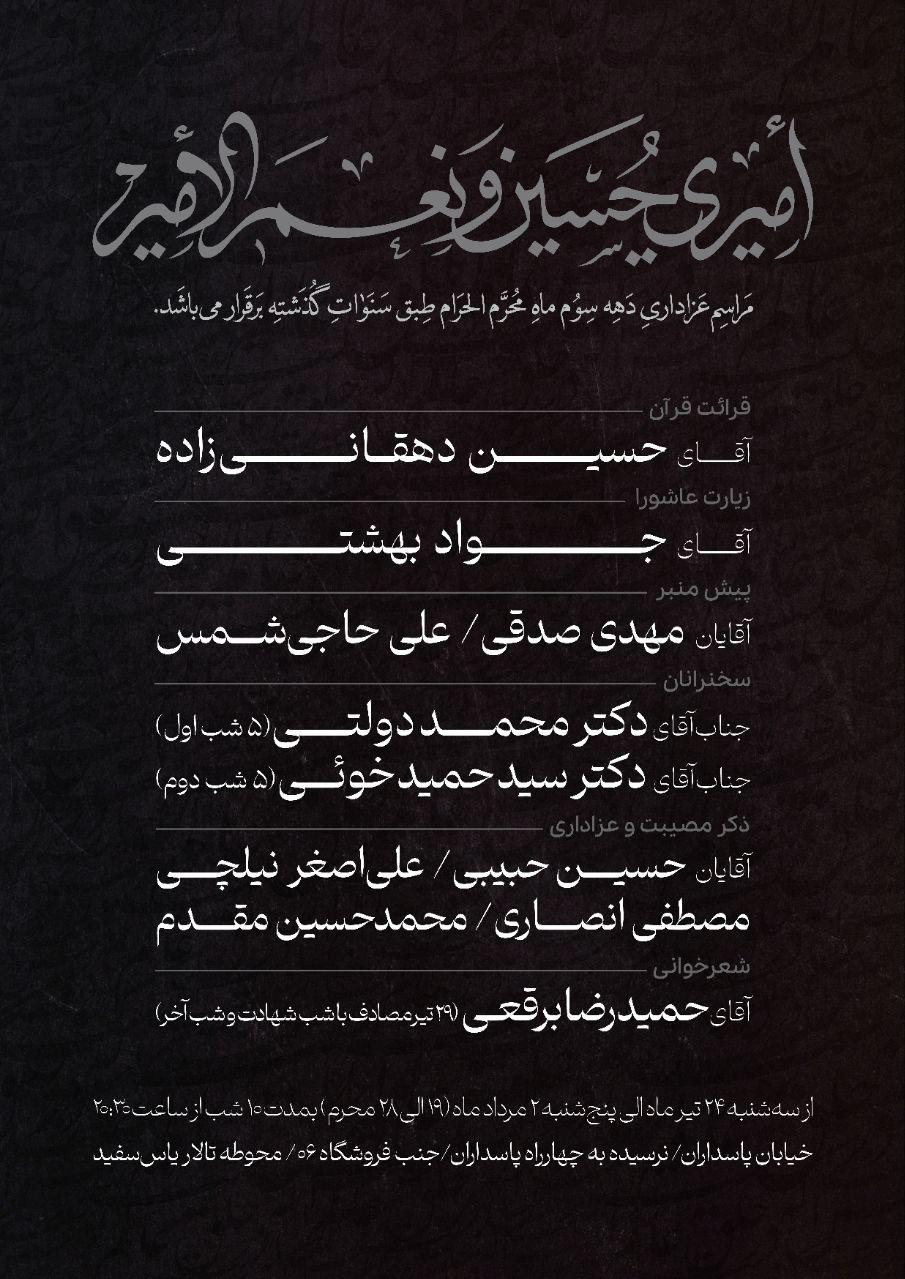 أميري حُسَين وَنِعْمَ الأمير
مَراسِم عَزاداریِ دَههِ سِوُم ماهِ مُحَرَّم الحَرَام طِبق سَنَواتِ گُذَشتِه بَرقَرار می‌باشَد.
قرائت قرآن
آقـــای حسیـــــن دهقـانـــــی‌زاده
زیارت عاشورا
آقـــای جـــــواد بهشتـــــی
پیش منبر
آقایان مهدی صدقی / علی حاجی‌شـمس
سخنرانان
جناب‌آقای دکتر محمـــد دولتـــی (۵ شب اول)
جناب‌آقای دکتر سید حمید خوئـــی (۵ شب دوم)
ذکر مصیبت و عزاداری
آقایان حسیـــن حبیبی / علی‌اصغر نیلچـــی
مصطفی انصـــاری / محمدحسین مقـــدم
شعرخوانی
آقای حمیدرضا برقعـی (۲۹ تیر مصادف با شب شهادت و شب آخر)
از سه‌شنبه ۲۴ تیر ماه الی پنج‌شنبه ۲ مرداد ماه (۱۹ الی ۲۸ محرم) بمدت ۱۰ شب از ساعت ۲۰:۳۰
خیابان پاسداران/ نرسیده به چهارراه پاسداران/ جنب فروشگاه ۰۶/ محوطه تالار یاس‌سفید